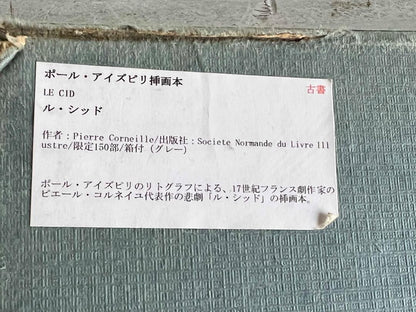 ポール・アイズピリ挿画本
古書
LE CID
ル・シッド
作者：Pierre Corneille/出版社：Societe Normande du Livre Ill
ustre/限定150部/箱付（グレー）
ポール・アイズピリのリトグラフによる、17世紀フランス劇作家の
ピエール・コルネイユ代表作の悲劇「ル・シッド」の挿画本。